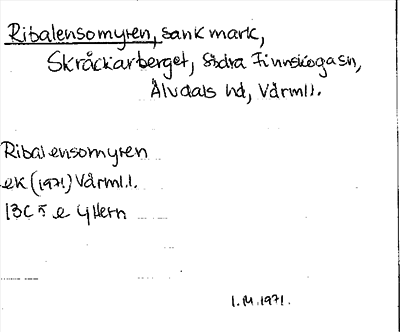 Ribalensomyren, sank mark,
Skråckarberget, Södra Finnskoga sn,
Älvdals hd, Värml.
Ribalensomyren
ek (1971) Värml.
13C 5 e Yttern
1.M.1971.